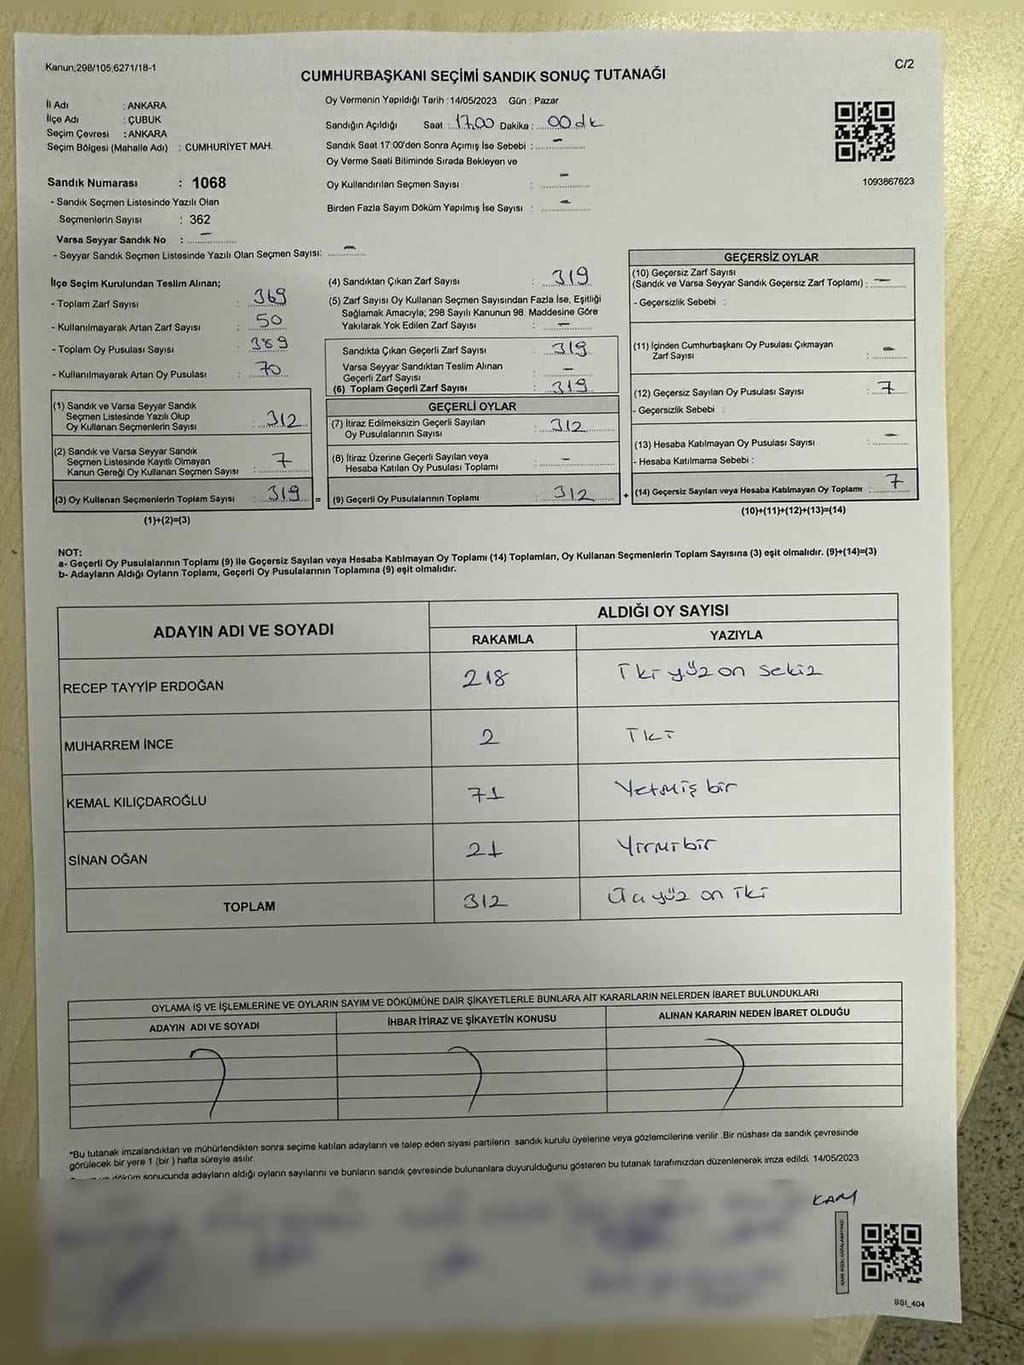 Kanun;298/105;6271/18-1
C/2
CUMHURBAŞKANI SEÇİMİ SANDIK SONUÇ TUTANAĞI
İl Adı : ANKARA
İlçe Adı : ÇUBUK
Seçim Çevresi : ANKARA
Seçim Bölgesi (Mahalle Adı) : CUMHURİYET MAH.
Sandık Numarası : 1068
- Sandık Seçmen Listesinde Yazılı Olan
Seçmenlerin Sayısı : 362
Varsa Seyyar Sandık No : –
- Seyyar Sandık Seçmen Listesinde Yazılı Olan Seçmen Sayısı: –
Oy Vermenin Yapıldığı Tarih : 14/05/2023 Gün : Pazar
Sandığın Açıldığı Saat : 17.00 Dakika : 00 dk
Sandık Saat 17:00'den Sonra Açımış İse Sebebi : –
Oy Verme Saati Bitiminde Sırada Bekleyen ve
Oy Kullandırılan Seçmen Sayısı : –
Birden Fazla Sayım Döküm Yapılmış İse Sayısı : –
1093867623
İlçe Seçim Kurulundan Teslim Alınan;
- Toplam Zarf Sayısı : 369
- Kullanılmayarak Artan Zarf Sayısı : 50
- Toplam Oy Pusulası Sayısı : 389
- Kullanılmayarak Artan Oy Pusulası : 70
(1) Sandık ve Varsa Seyyar Sandık
Seçmen Listesinde Yazılı Olup
Oy Kullanan Seçmenlerin Sayısı : 312
(2) Sandık ve Varsa Seyyar Sandık
Seçmen Listesinde Kayıtlı Olmayan
Kanun Gereği Oy Kullanan Seçmen Sayısı : 7
(3) Oy Kullanan Seçmenlerin Toplam Sayısı : 319 =
(1)+(2)=(3)
(4) Sandıktan Çıkan Zarf Sayısı : 319
(5) Zarf Sayısı Oy Kullanan Seçmen Sayısından Fazla İse, Eşitliği
Sağlamak Amacıyla; 298 Sayılı Kanunun 98. Maddesine Göre
Yakılarak Yok Edilen Zarf Sayısı : –
Sandıkta Çıkan Geçerli Zarf Sayısı : 319
Varsa Seyyar Sandıktan Teslim Alınan
Geçerli Zarf Sayısı : –
(6) Toplam Geçerli Zarf Sayısı : 319
GEÇERLİ OYLAR
(7) İtiraz Edilmeksizin Geçerli Sayılan
Oy Pusulalarının Sayısı : 312
(8) İtiraz Üzerine Geçerli Sayılan veya
Hesaba Katılan Oy Pusulası Toplamı : –
(9) Geçerli Oy Pusulalarının Toplamı : 312 +
GEÇERSİZ OYLAR
(10) Geçersiz Zarf Sayısı
(Sandık ve Varsa Seyyar Sandık Geçersiz Zarf Toplamı) : –
- Geçersizlik Sebebi :
(11) İçinden Cumhurbaşkanı Oy Pusulası Çıkmayan
Zarf Sayısı : –
(12) Geçersiz Sayılan Oy Pusulası Sayısı : 7
- Geçersizlik Sebebi :
(13) Hesaba Katılmayan Oy Pusulası Sayısı : –
- Hesaba Katılmama Sebebi :
(14) Geçersiz Sayılan veya Hesaba Katılmayan Oy Toplamı : 7
(10)+(11)+(12)+(13)=(14)
NOT:
a- Geçerli Oy Pusulalarının Toplamı (9) ile Geçersiz Sayılan veya Hesaba Katılmayan Oy Toplamı (14) Toplamları, Oy Kullanan Seçmenlerin Toplam Sayısına (3) eşit olmalıdır. (9)+(14)=(3)
b- Adayların Aldığı Oyların Toplamı, Geçerli Oy Pusulalarının Toplamına (9) eşit olmalıdır.
ADAYIN ADI VE SOYADI
ALDIĞI OY SAYISI
RAKAMLA YAZIYLA
RECEP TAYYİP ERDOĞAN 218 İki yüz on sekiz
MUHARREM İNCE 2 İki
KEMAL KILIÇDAROĞLU 71 Yetmiş bir
SİNAN OĞAN 21 Yirmi bir
TOPLAM 312 Üç yüz on iki
OYLAMA İŞ VE İŞLEMLERİNE VE OYLARIN SAYIM VE DÖKÜMÜNE DAİR ŞİKAYETLERLE BUNLARA AİT KARARLARIN NELERDEN İBARET BULUNDUKLARI
ADAYIN ADI VE SOYADI İHBAR İTİRAZ VE ŞİKAYETİN KONUSU ALINAN KARARIN NEDEN İBARET OLDUĞU
*Bu tutanak imzalandıktan ve mühürlendikten sonra seçime katılan adayların ve talep eden siyasi partilerin sandık kurulu üyelerine veya gözlemcilerine verilir. Bir nüshası da sandık çevresinde
görülecek bir yere 1 (bir) hafta süreyle asılır.
döküm sonucunda adayların aldığı oyların sayılarını ve bunların sandık çevresinde bulunanlara duyurulduğunu gösteren bu tutanak tarafımızdan düzenlenerek imza edildi. 14/05/2023
SSI_404